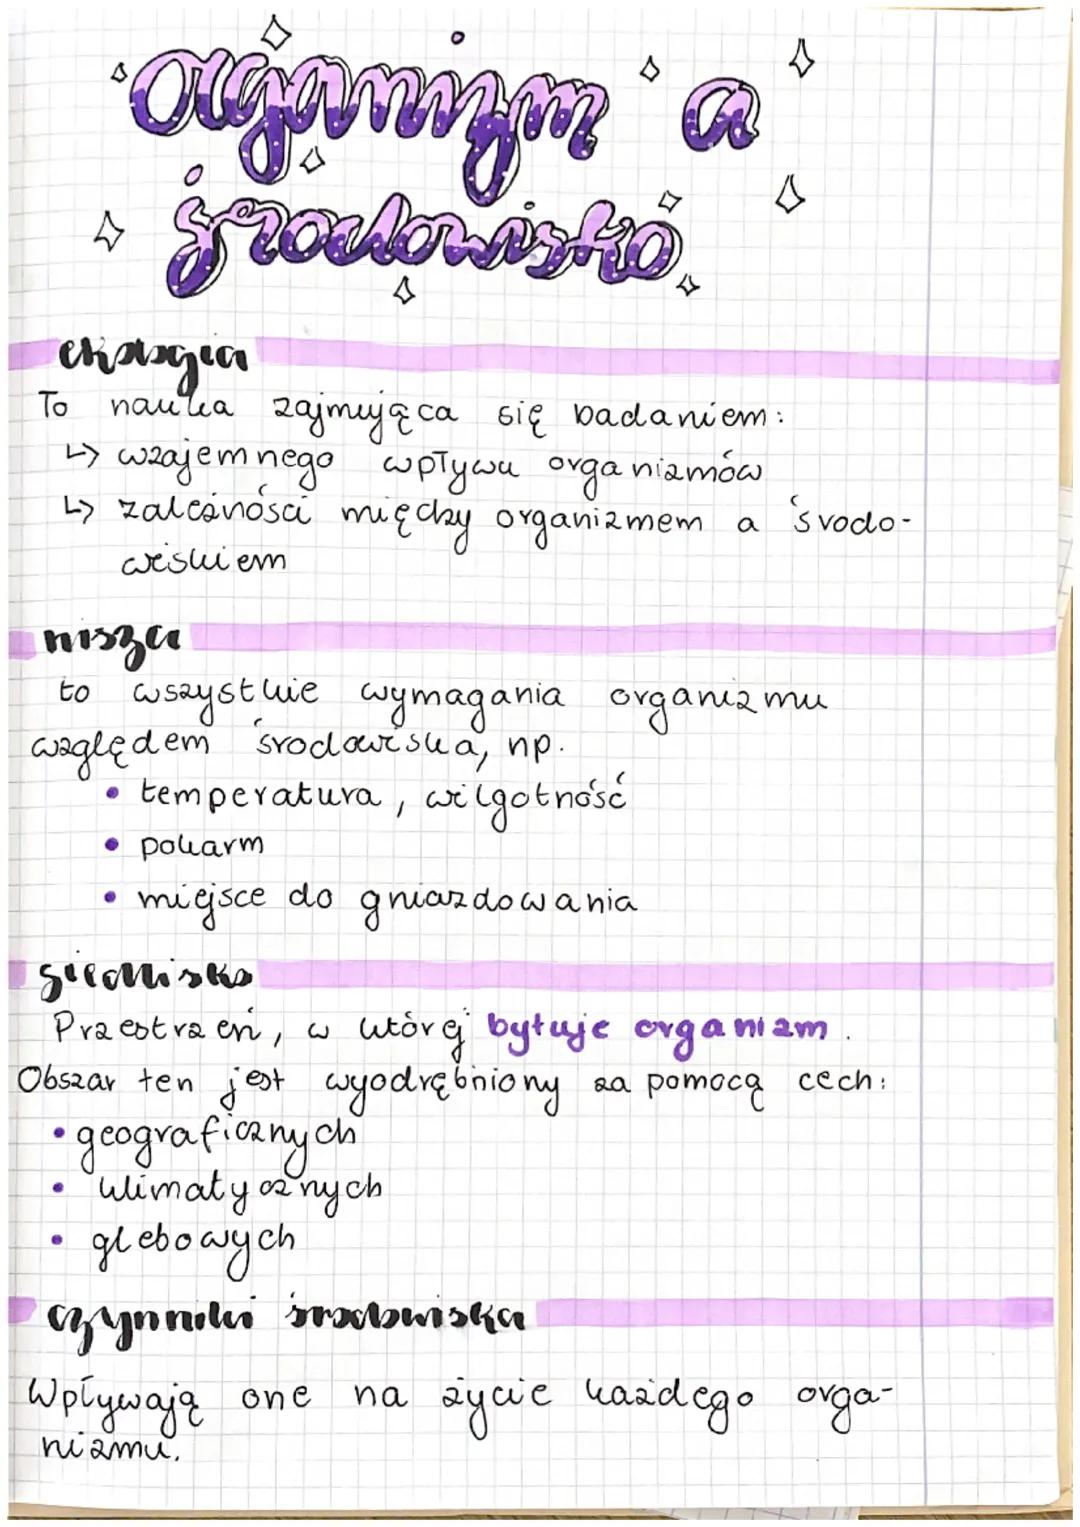 organizm a
środowisko
ekologia
To nauka zajmująca się badaniem:
↳ wzajemnego wpływu organizmów
↳ zależności między organizmem a środo-
wiskiem
nisza
to wszystkie wymagania organizmu
względem środowiska, np.
• temperatura, wilgotność
• pokarm
• miejsce do gniazdowania
siedlisko
Przestrzeń, w której bytuje organizm.
Obszar ten jest wyodrębniony za pomocą cech:
• geograficznych
• klimatycznych
• glebowych
czynniki środowiska
Wpływają one na życie każdego orga-
nizmu.